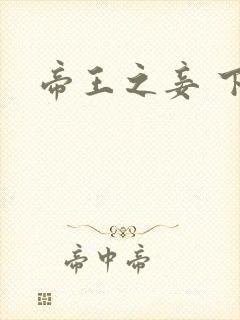 帝王之妾 下
帝中帝